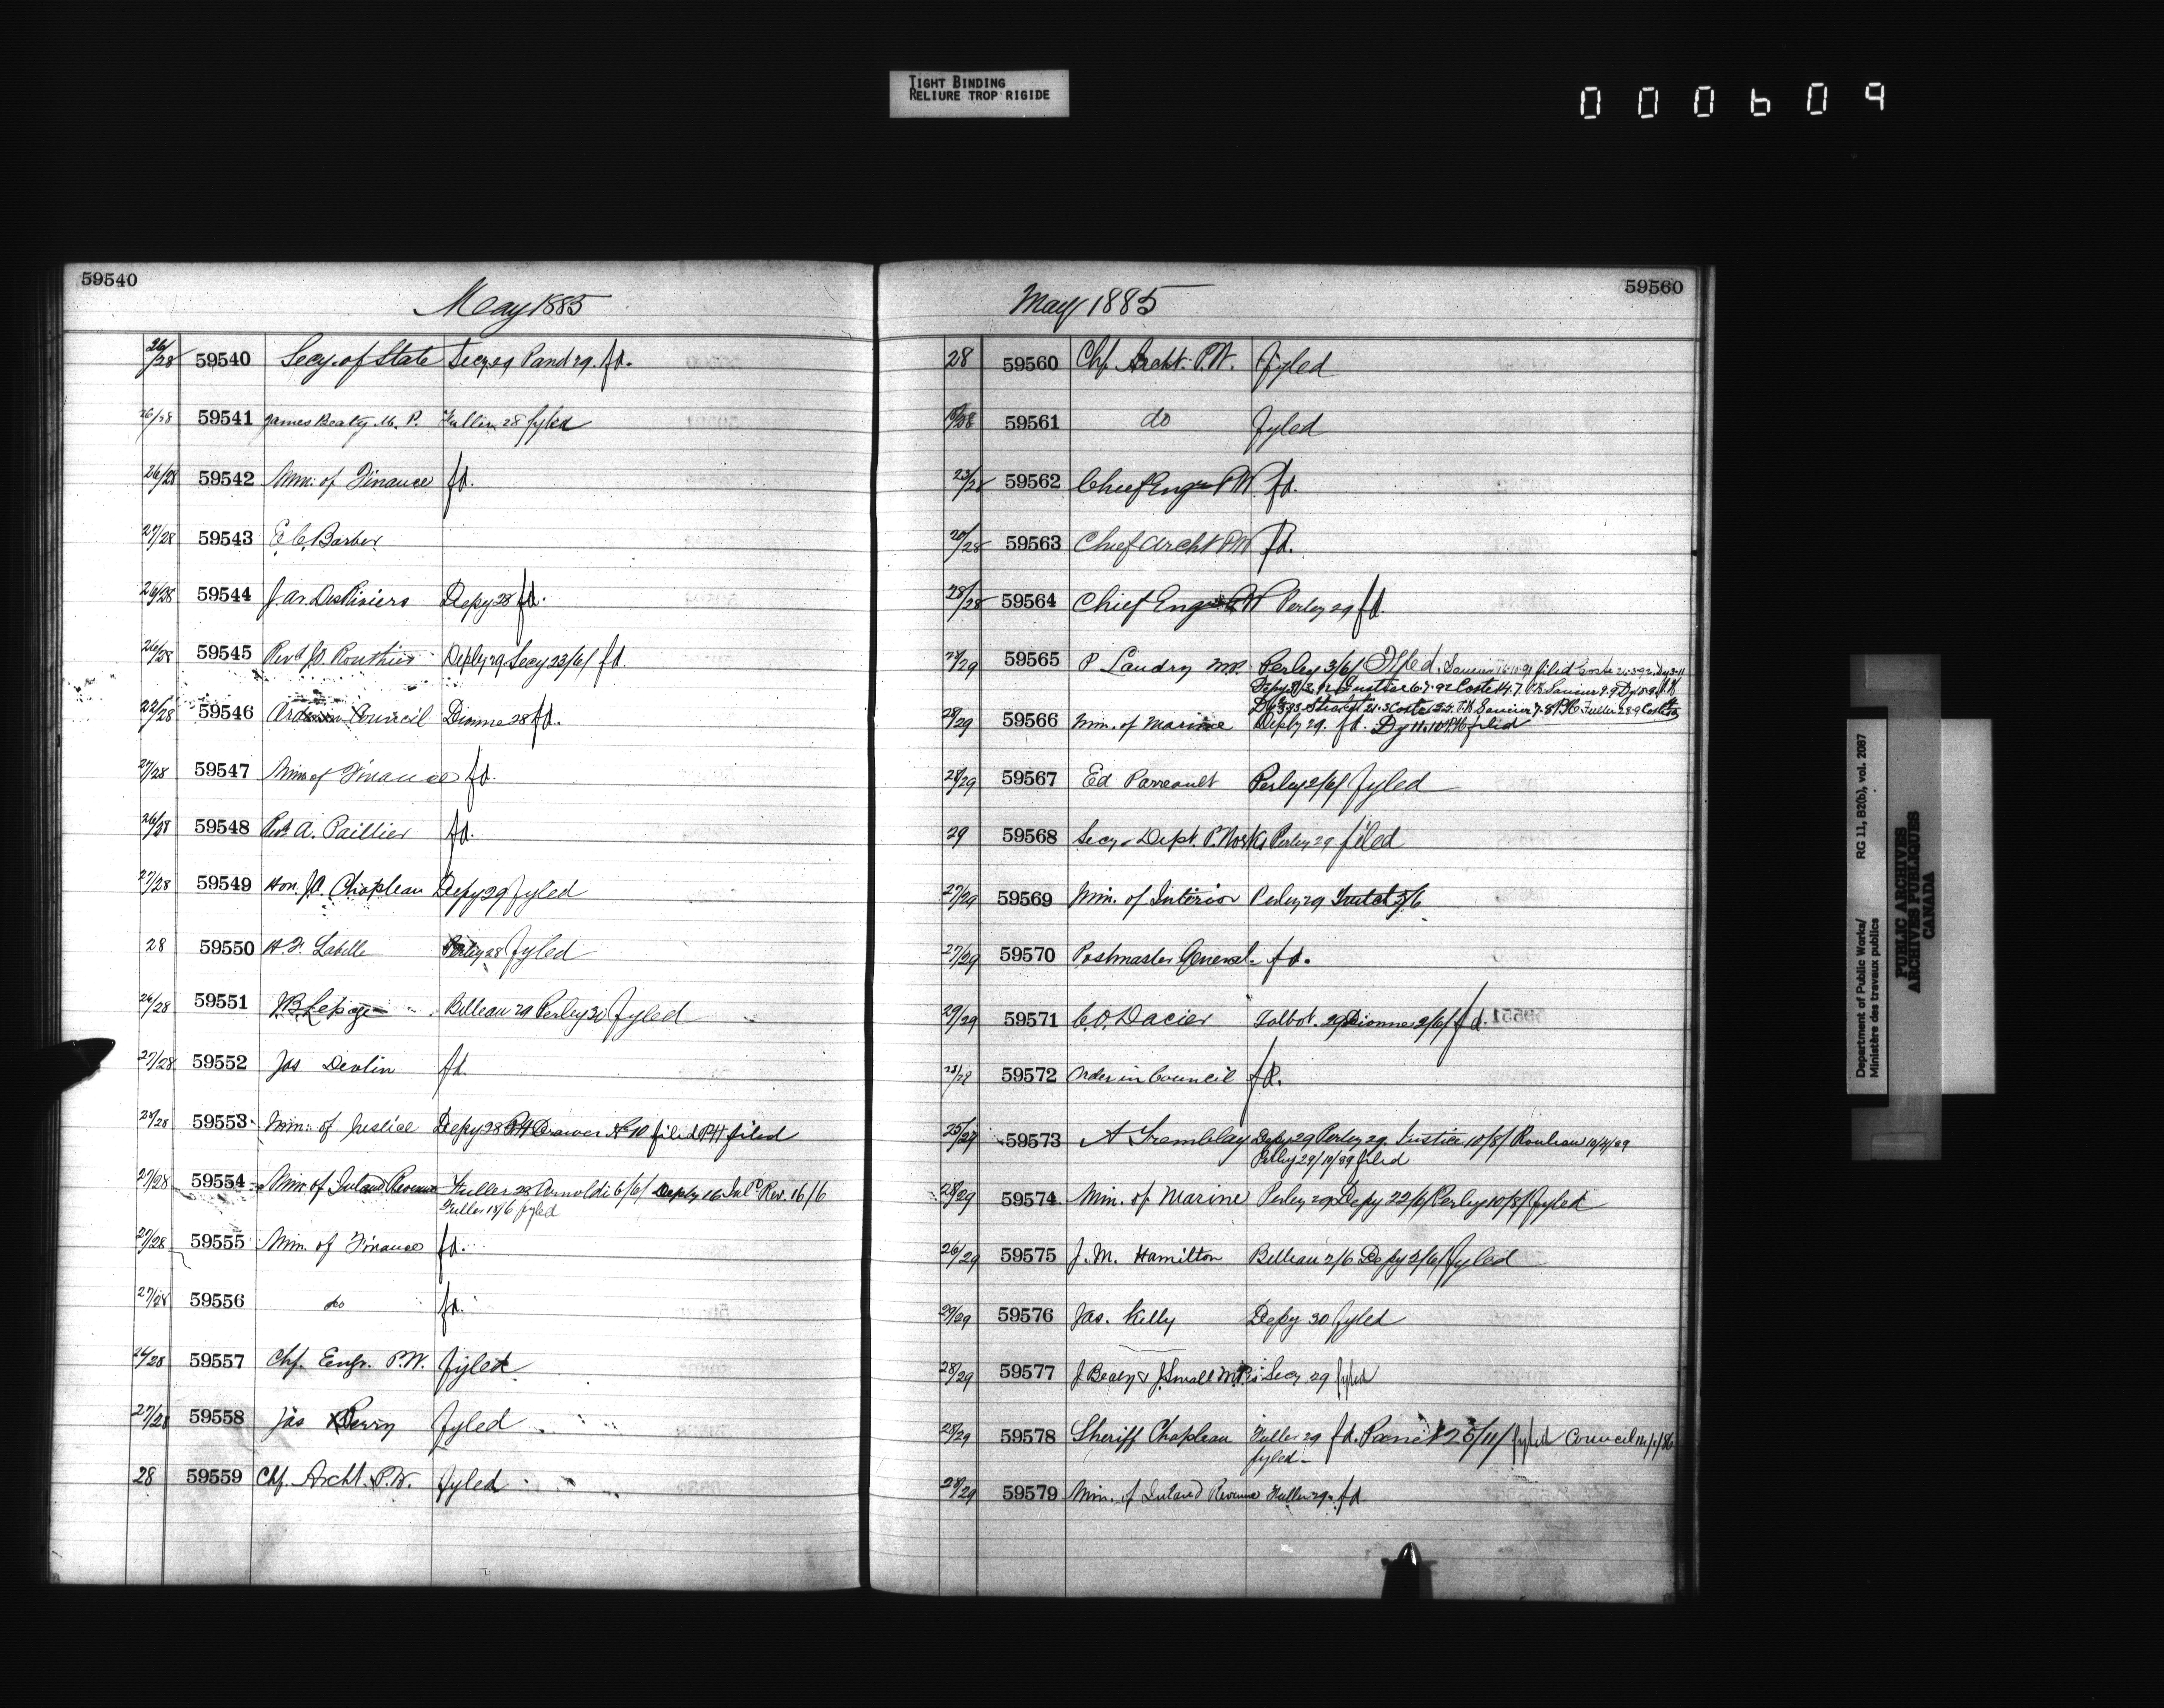 TIGHT BINDING
RELIURE TROP RIGIDE
000609
59540
May 1885
26/28 59540 Secy. of State Secy 29 Pand 29. fd.
26/28 59541 James Beaty M.P. Fuller 28 fyled
26/28 59542 Min: of Finance fd.
27/28 59543 E.C. Barber
26/28 59544 J. A. DesRivieres Depy 28 fd.
26/28 59545 Revd J. Routhier Depty 29 Secy 23/6/ fd.
22/28 59546 Council Dionne 28 fd.
27/28 59547 Min of Finance fd.
26/28 59548 Revd A. Paillier fd.
27/28 59549 Hon. J.A. Chapleau Depy 29 fyled
28 59550 H. F. Labelle Perley 28 fyled
26/28 59551 J.B. Lepage Billeau 29 Perley 30 fyled
27/28 59552 Jas Devlin fd.
27/28 59553 Min: of Justice Depy 28 PH Drawer No 10 filed PH filed
27/28 59554 Min of Inland Revenue Fuller 28 Arnoldi 6/6/ Depty 16 Inld Rev. 16/6
Fuller 18/6 fyled
27/28 59555 Min. of Finance fd.
27/28 59556 do fd.
59557 Chf. Engr. P.W. fyled
27/28 59558 Jas fyled
28 59559 Chf. Archt. P.W. fyled
59560
May 1885
28 59560 Chf. Archt. P.W. fyled
59561 do fyled
23/28 59562 Chief Engr PW. fd.
20/28 59563 Chief Archt PW fd.
28/28 59564 Chief Engr PW Perley 29 fd.
59565 P Landry MP. Perley 3/6/ filed
28/29 59566 Min. of Marine Depty 29. fd. filed
28/29 59567 Ed Parreault Perley 2/6/ fyled
29 59568 Secy. Dept. P. Works Perley 29 filed
27/29 59569 Min. of Interior Perley 29
27/29 59570 Postmaster General fd.
29/29 59571 C.O. Dacier Talbot 29 Dionne 2/6/ fd.
59572 Order in Council fd.
59573 A Tremblay Depy 29 Perley 29. Justice 10/8/
Perley 29/10/89 filed
28/29 59574 Min. of Marine Perley 29 Depy 22/6/ Perley 10/8/ fyled
26/29 59575 J. M. Hamilton Billeau 2/6 Depy 2/6/ fyled
29/29 59576 Jas. Kelly Depy 30 fyled
28/29 59577 J Beaty & J. Small M.P.s Secy 29 fyled
28/29 59578 Sheriff Chapleau Fuller 29 fd. fyled Council
fyled
28/29 59579 Min. of Inland Revenue Fuller 29 fd.
Department of Public Works/
Ministère des travaux publics
RG 11, B2(b), vol. 2087
PUBLIC ARCHIVES
ARCHIVES PUBLIQUES
CANADA